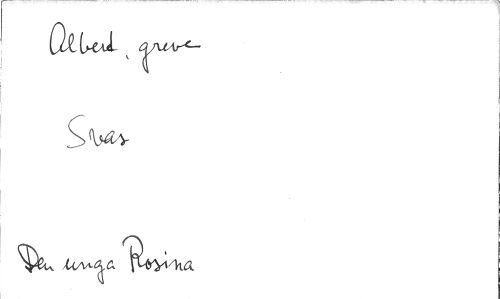 Albert, greve
Svas
Den unga Rosina